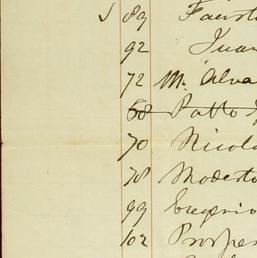 √ 89 Faust
92 Juan
72 M. Alva
68 Pablo
70 Nicola
78 Modesto
99 Gregorio
102 Prosper